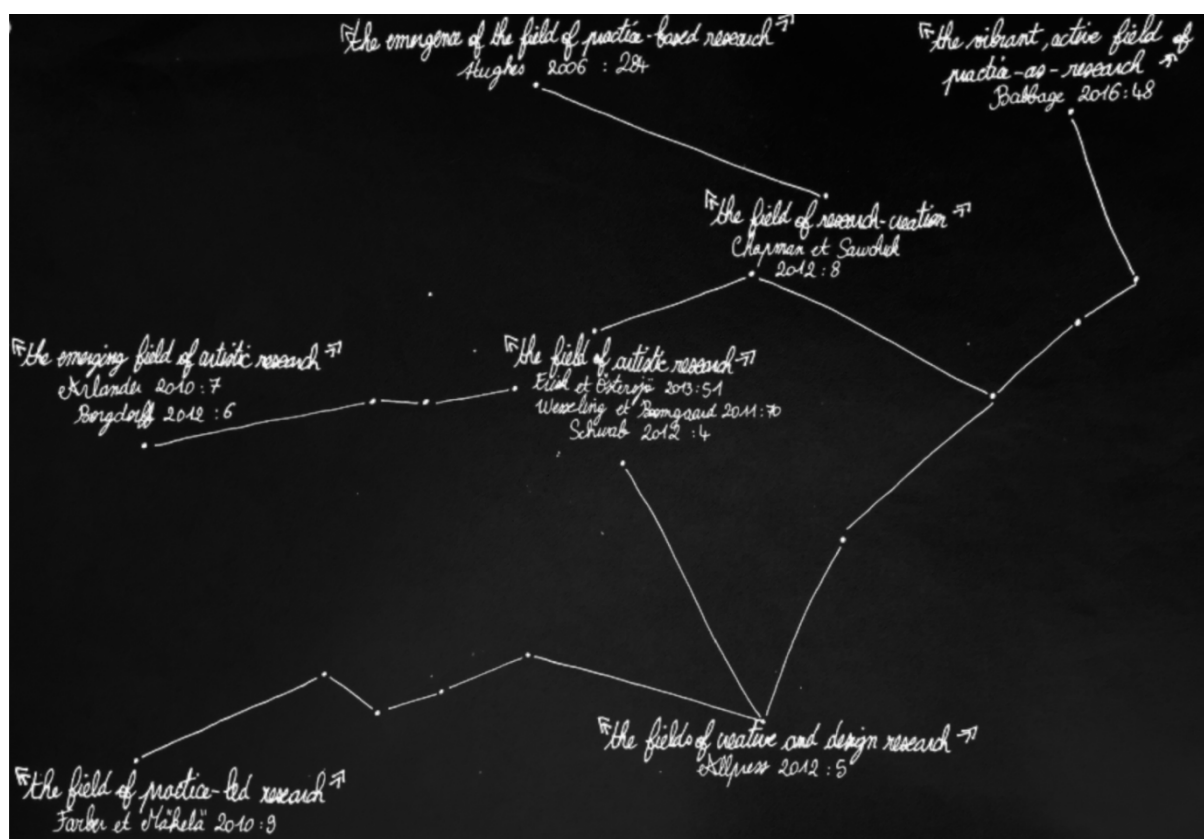 "the emergence of the field of practice-based research"
Hughes 2006 : 284
"the vibrant, active field of
practice-as-research"
Babbage 2016:48
"the field of research-creation"
Chapman et Sawchuk
2012 : 8
"the emerging field of artistic research"
Arlander 2010 : 7
Borgdorff 2012 : 6
"the field of artistic research"
et Östersjö 2013:51
Wesseling et Boomgaard 2011:70
Schwab 2012 : 4
"the fields of creative and design research"
Allpress 2012:5
"the field of practice-led research"
Farber et Mäkelä 2010:9